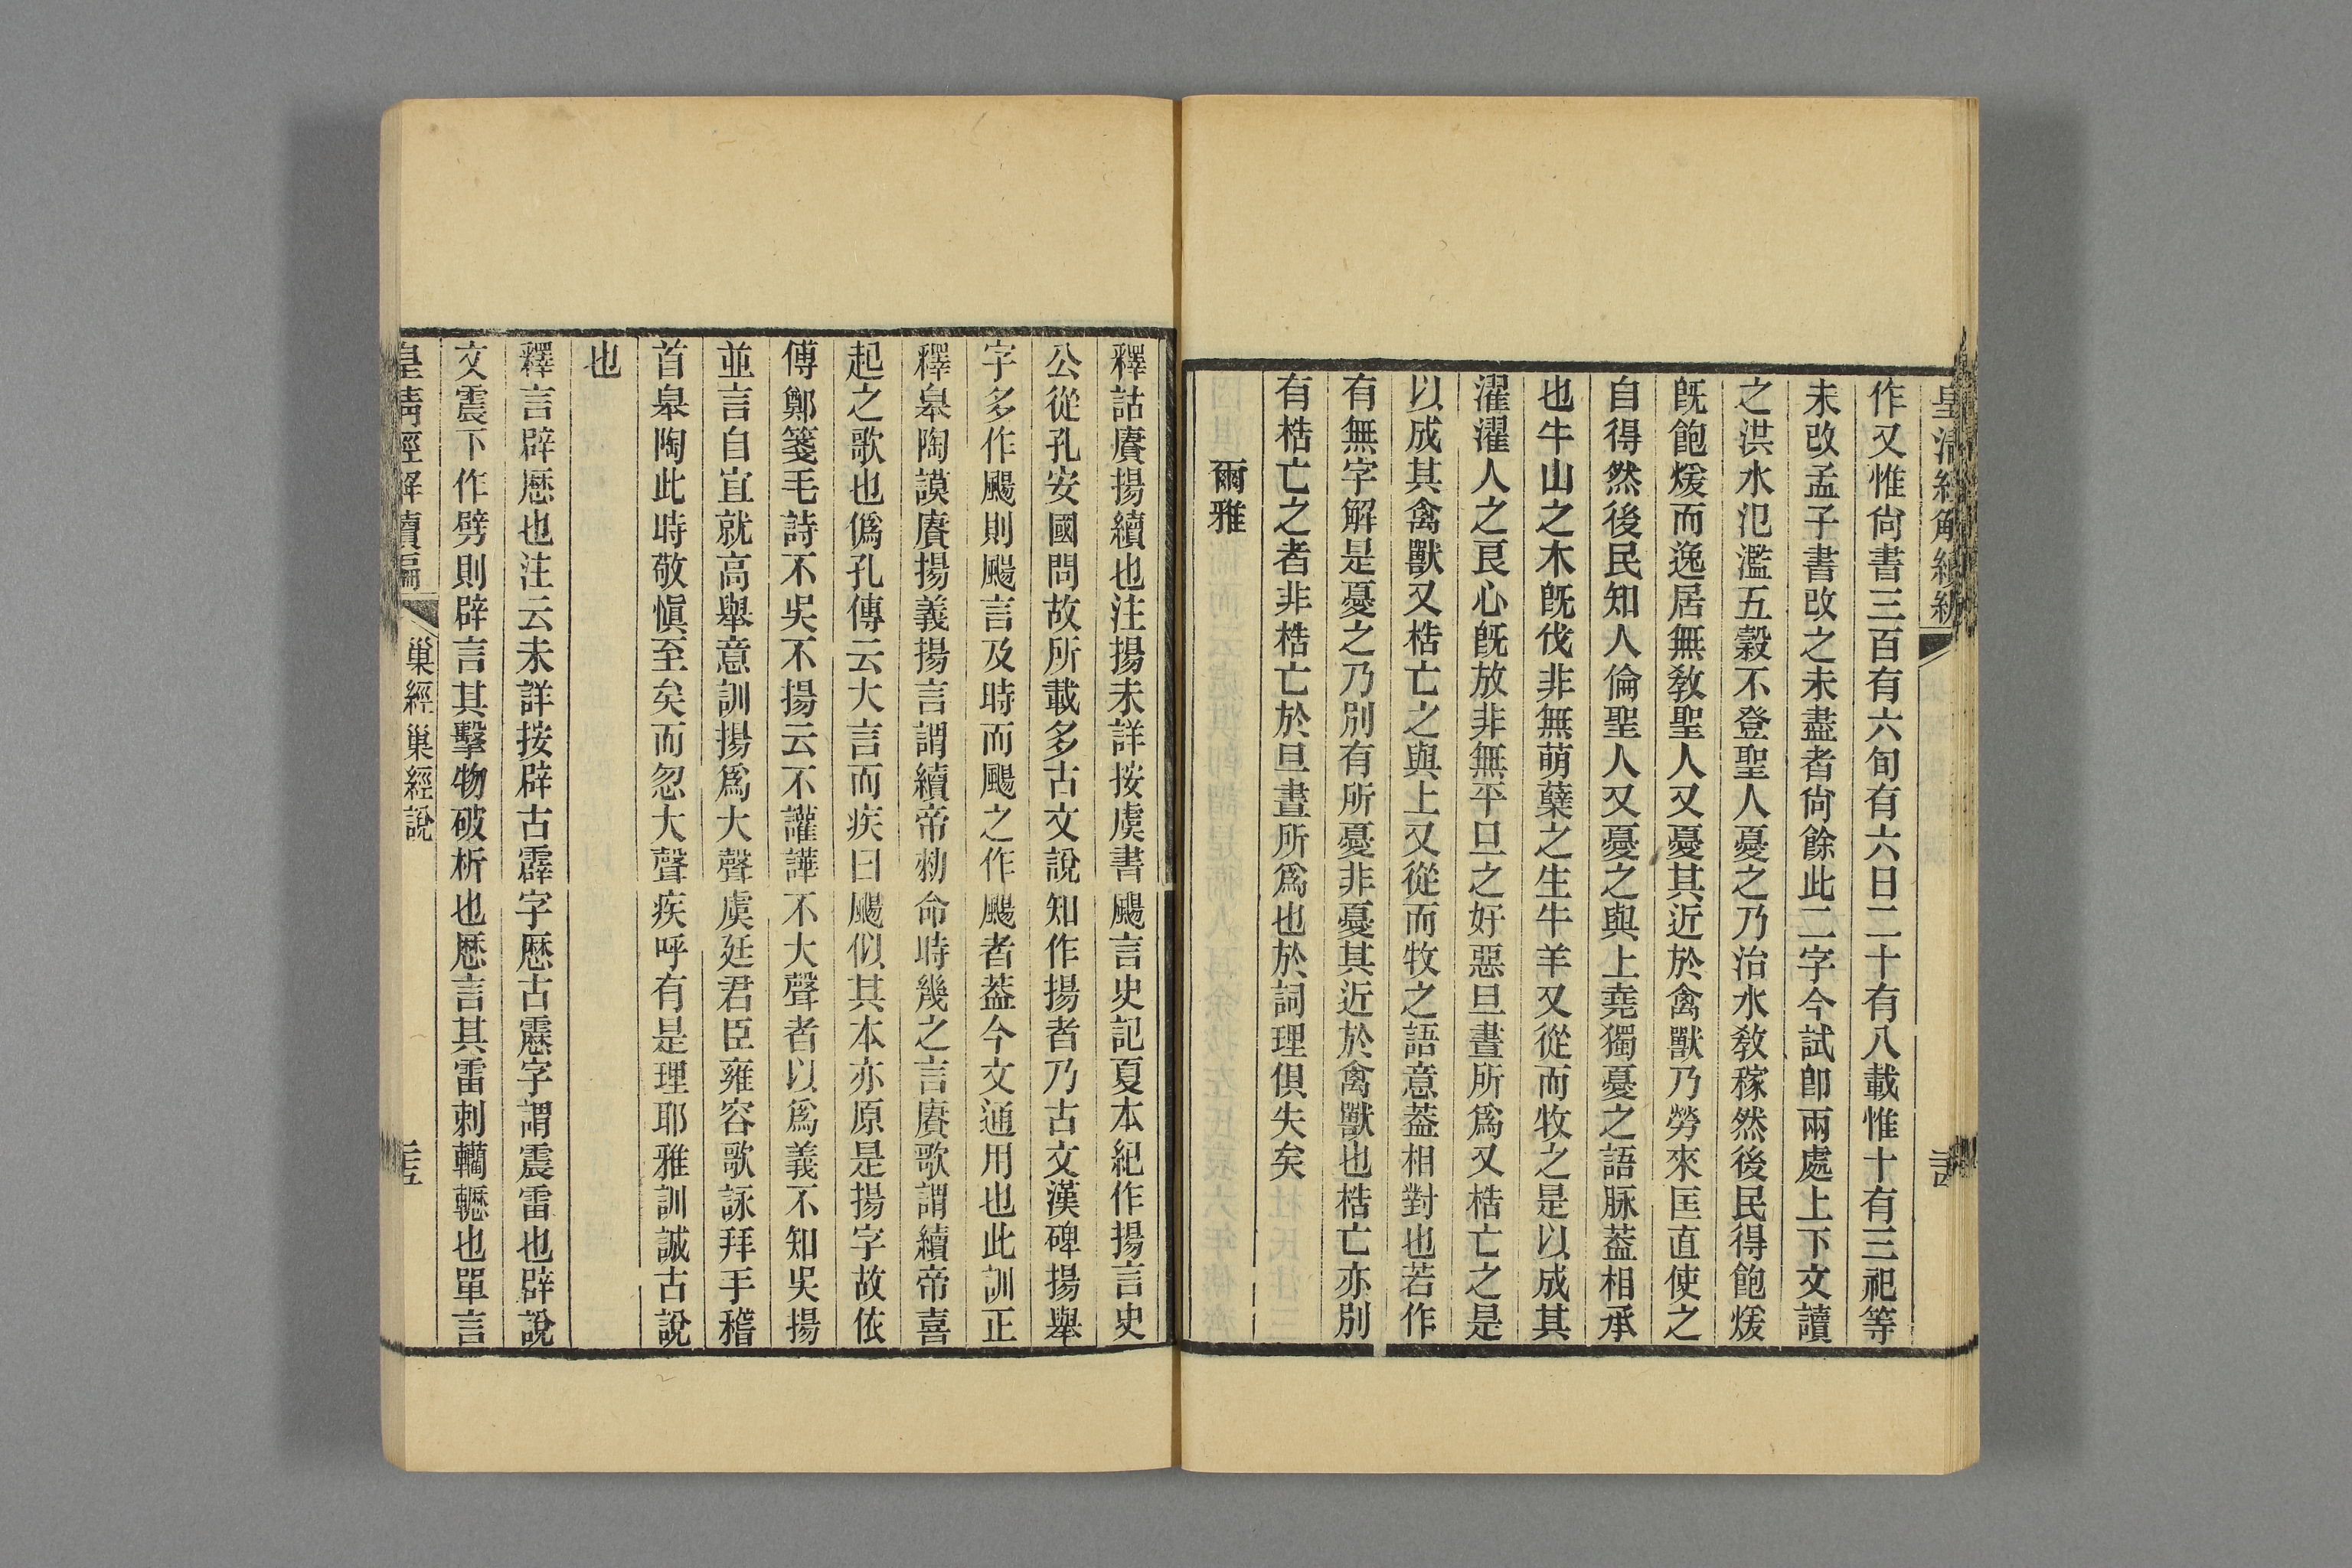 皇清經解續編
作又惟尙書三百有六旬有六日二十有八載惟十有三祀等
未改孟子書改之未盡者尙餘此二字今試卽兩處上下文讀
之洪水氾濫五穀不登聖人憂之乃治水敎稼然後民得飽煖
旣飽煖而逸居無敎聖人又憂其近於禽獸乃勞來匡直使之
自得然後民知人倫聖人又憂之與上堯獨憂之語脉葢相承
也牛山之木旣伐非無萌蘖之生牛羊又從而牧之是以成其
濯濯人之良心旣放非無平旦之好惡旦晝所爲又梏亡之是
以成其禽獸又梏亡之與上又從而牧之語意葢相對也若作
有無字解是憂之乃別有所憂非憂其近於禽獸也梏亡亦別
有梏亡之者非梏亡於旦晝所爲也於詞理俱失矣
爾雅
釋詁賡揚續也注揚未詳按虞書颺言史記夏本紀作揚言史
公從孔安國問故所載多古文說知作揚者乃古文漢碑揚舉
字多作颺則颺言及時而颺之作颺者葢今文通用也此訓正
釋皋陶謨賡揚義揚言謂續帝勑命時幾之言賡歌謂續帝喜
起之歌也僞孔傳云大言而疾曰颺似其本亦原是揚字故依
傅鄭箋毛詩不吳不揚云不讙譁不大聲者以爲義不知吳揚
並言自宜就高舉意訓揚爲大聲虞廷君臣雍容歌詠拜手稽
首皋陶此時敬愼至矣而忽大聲疾呼有是理耶雅訓誠古說
也
釋言辟歷也注云未詳按辟古霹字歷古靂字謂震雷也辟說
文震下作劈則辟言其擊物破析也歷言其雷刺轥轣也單言
皇淸經解續編
巢經巢經說